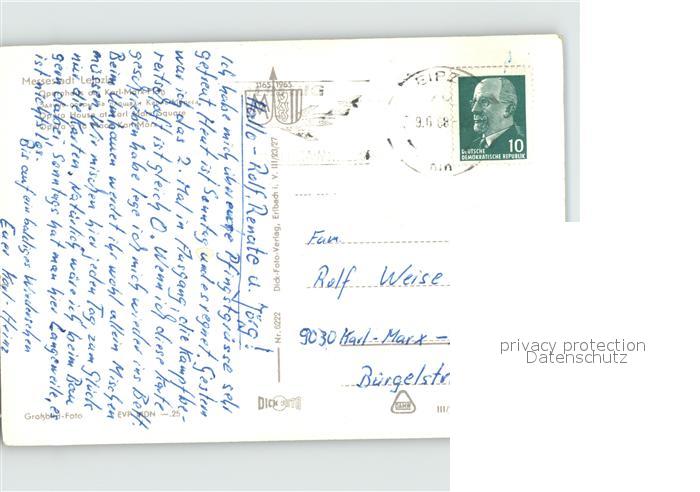 Messestadt Leipzig
Opernhaus am Karl-Marx-Platz
Opera House at Karl Marx Square
Großbild-Foto EVP MDN —.25
Nr. 6222 Dick-Foto-Verlag, Erlbach i. V. III/23/27
DICK FOTO
III/
1165 1965
LEIPZIG
9.6.68
10
DEUTSCHE
DEMOKRATISCHE REPUBLIK
Hallo - Rolf Renate u. Jörg!
Ich habe mich über eure Pfingstgrüsse sehr
gefreut. Heut ist Sonntag und es regnet. Gestern
war ich das 2. Mal in Ausgang, die Kampfbe-
reitschaft ist gleich 0. Wenn ich diese Karte
geschrieben habe lege ich mich wieder ins Bett.
Beim Umbauen werdet ihr wohl allein Mischen
müssen wir mischen hier jeden Tag zum Glück
nur Karten. Natürlich wäre ich beim Bau
gern dabei, Sonntags hat man hier Langeweile, es
ist nichts los.
Bis auf ein baldiges Wiedersehen
Euer Karl Heinz
Fam.
Rolf Weise
9030 Karl-Marx-
Bürgelstr
privacy protection
Datenschutz